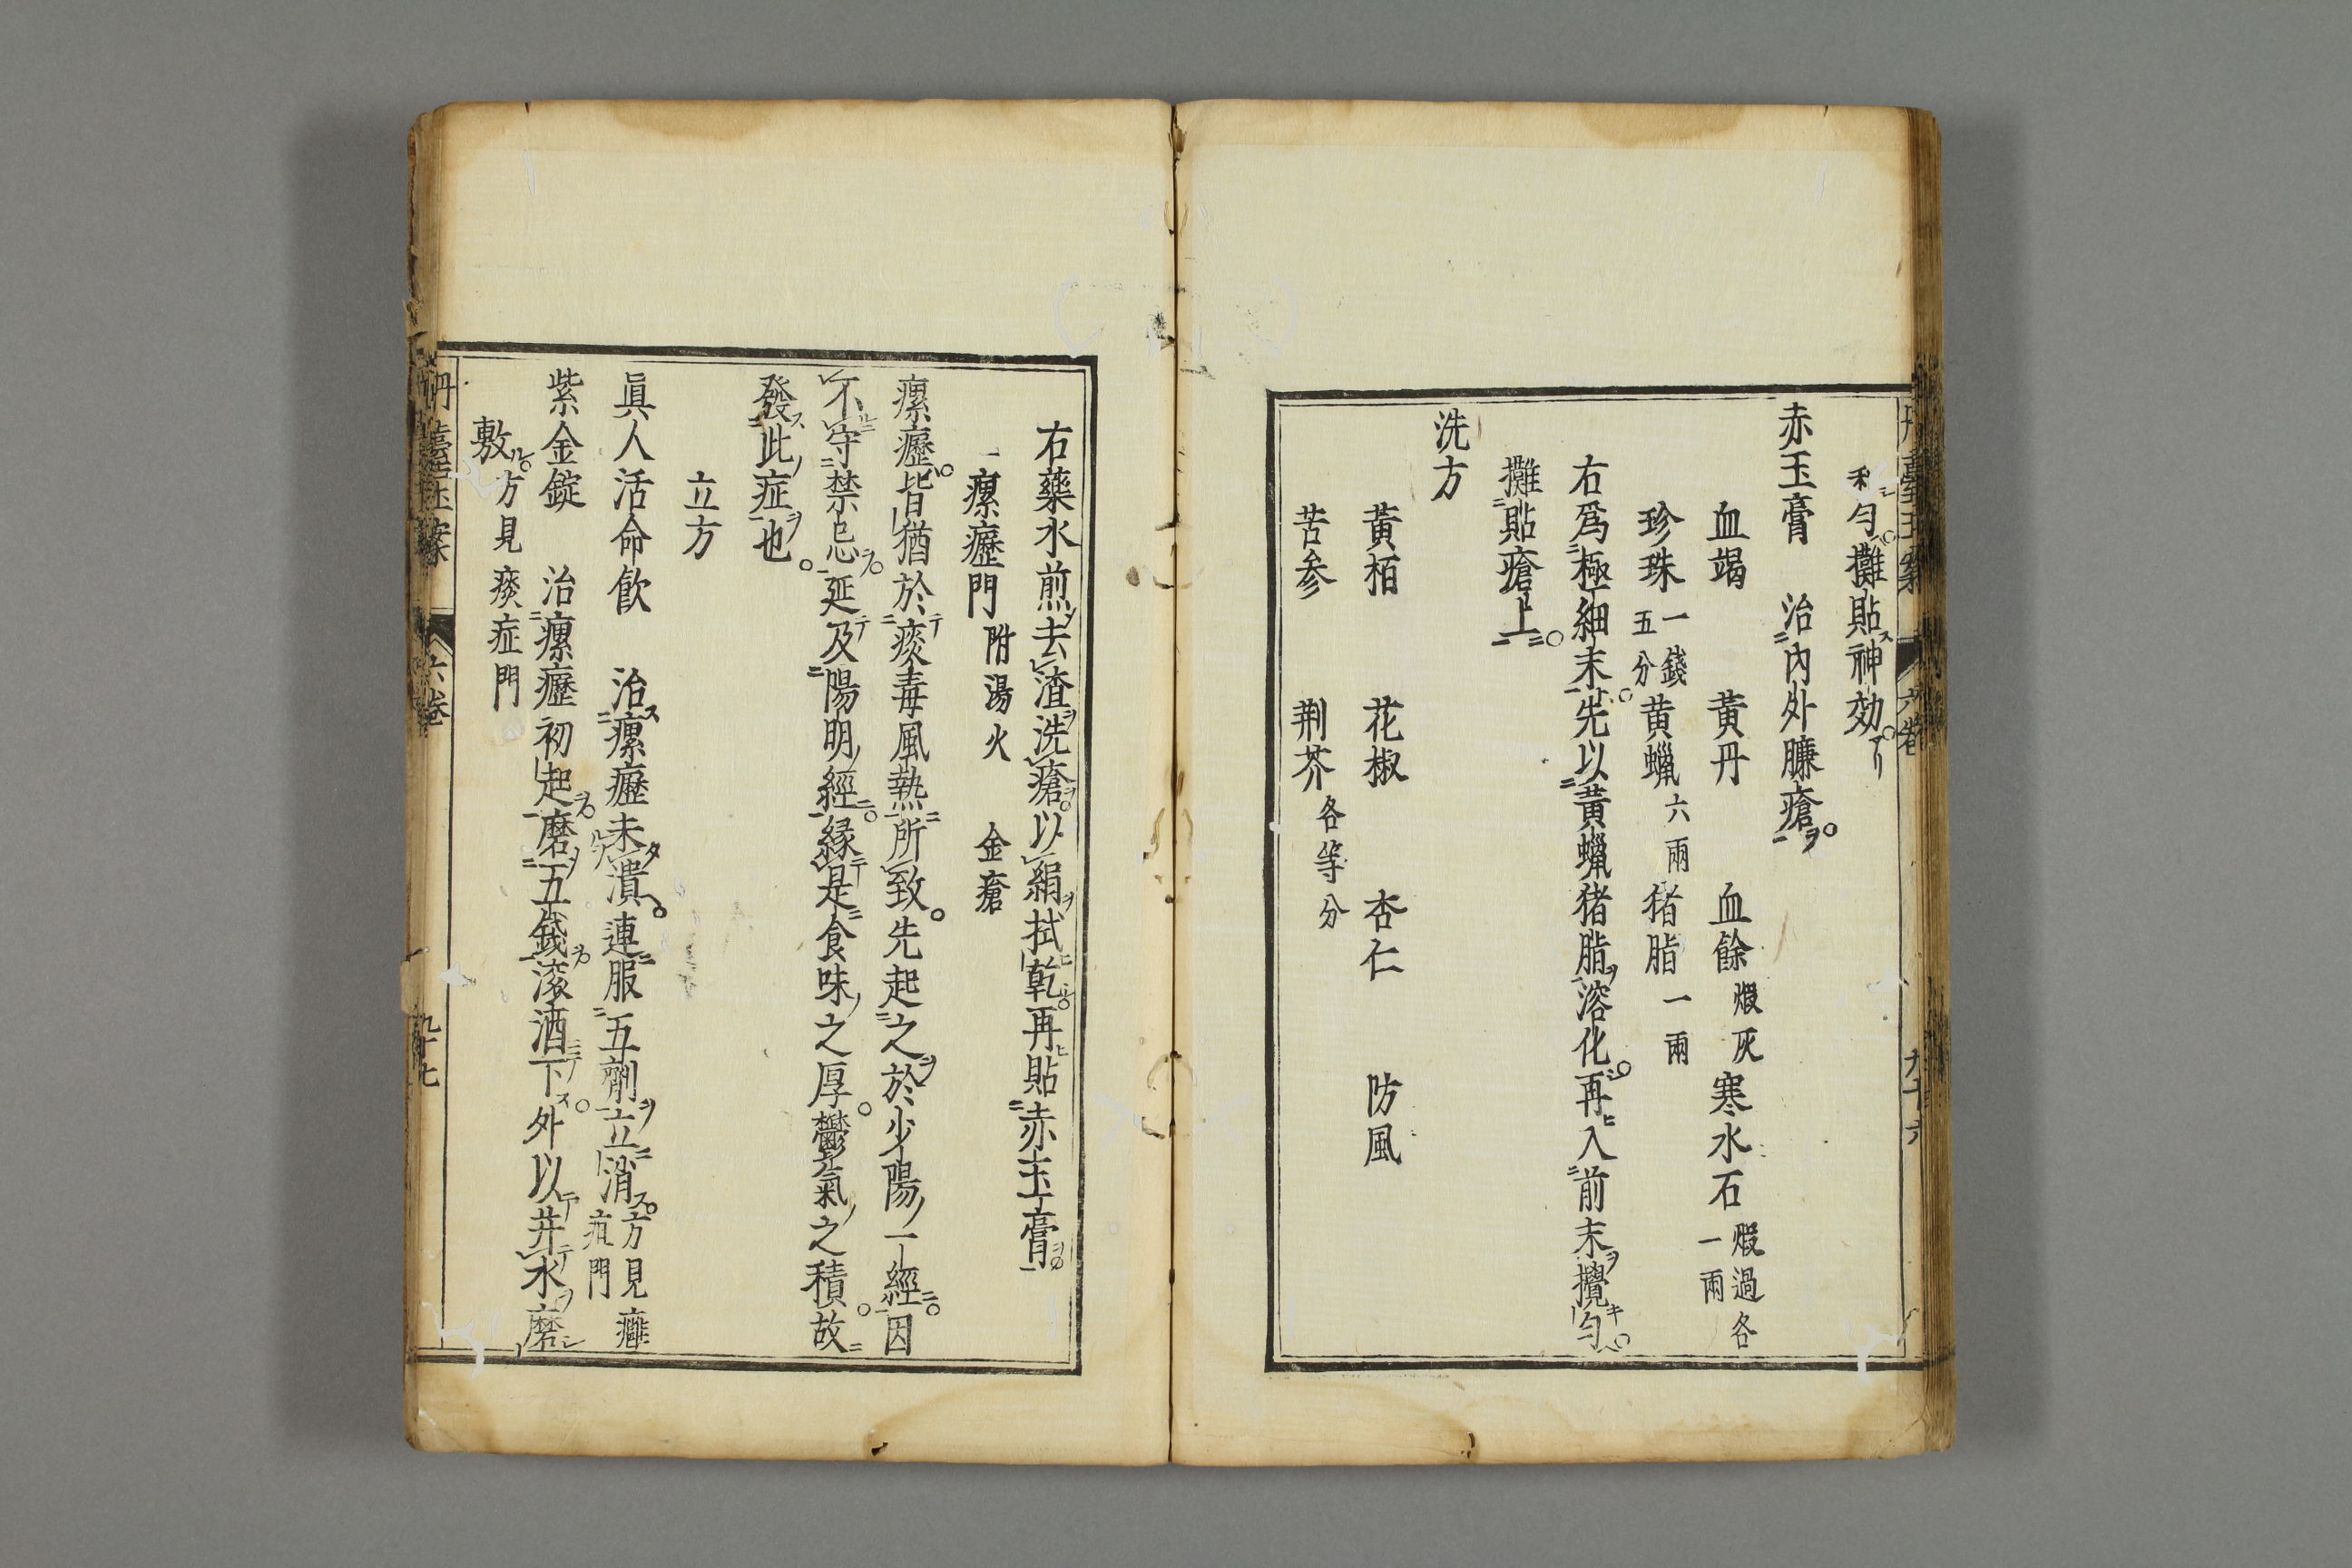 和勻攤貼神効
赤玉膏　治內外臁瘡
血竭　黃丹　血餘煆灰寒水石煆過各一兩
珍珠一錢五分黄蠟六兩猪脂一兩
右爲極細末先以黄蠟猪脂溶化再入前末攪勻
攤貼瘡上
洗方
黄栢　花椒　杏仁　防風
苦参　荆芥各等分
右藥水煎去渣洗瘡以絹拭乾再貼赤玉膏
瘰癧門附湯火　金瘡
瘰癧皆猶於痰毒風熱所致先起之於少陽一經因
不守禁忌延及陽明經縁是食味之厚鬱氣之積故
發此症也
立方
眞人活命飲　治瘰癧未潰連服五劑立消方見癰疽門
紫金錠　治瘰癧初起磨五錢滚酒下外以井水磨
敷方見痰症門
六卷
九十七